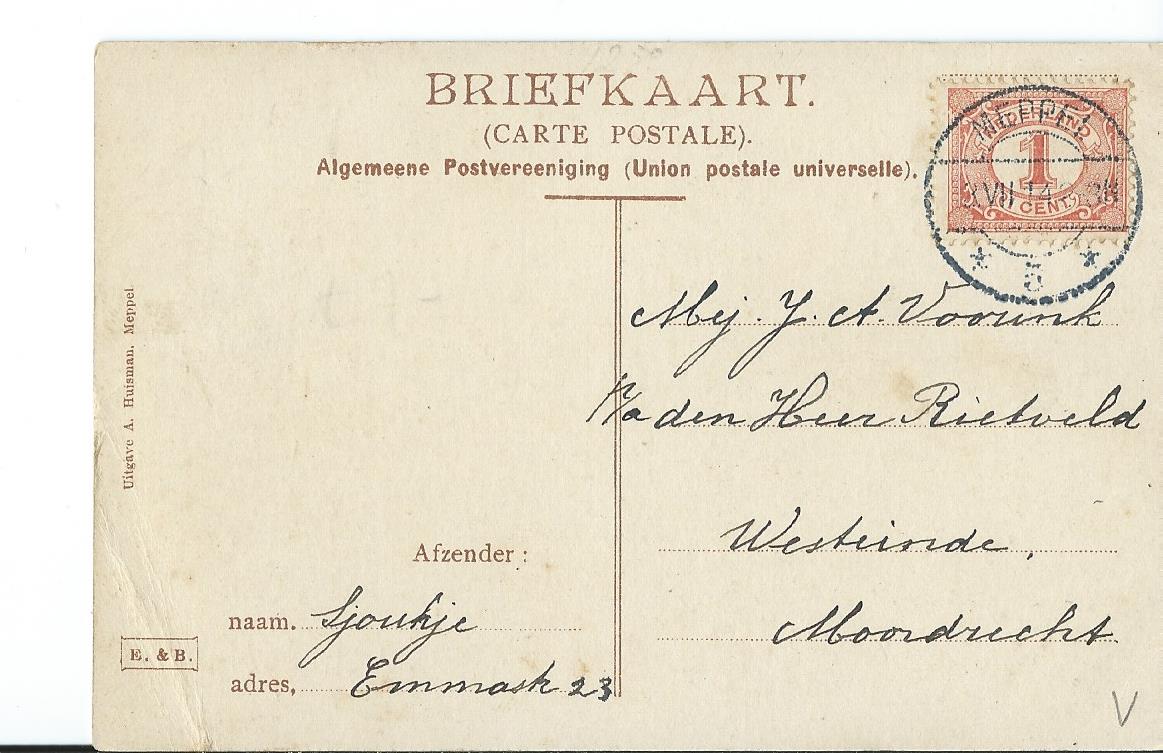 BRIEFKAART.
(CARTE POSTALE).
Algemeene Postvereeniging (Union postale universelle).
NEDERLAND
1
CENT
MEPPEL
3.VII.14
5
Mej. J. A. Voorink
p/a den Heer Rietveld
Westeinde,
Moordrecht.
Uitgave A. Huisman, Meppel
Afzender:
naam. Sjoukje
adres, Emmastr 23
E. & B.
V